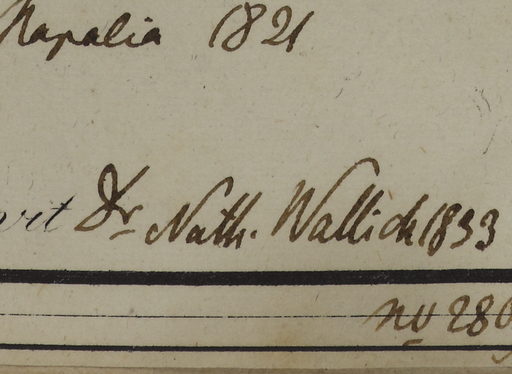 Napalia 1821
Dr Nath. Wallich 1833
no 280